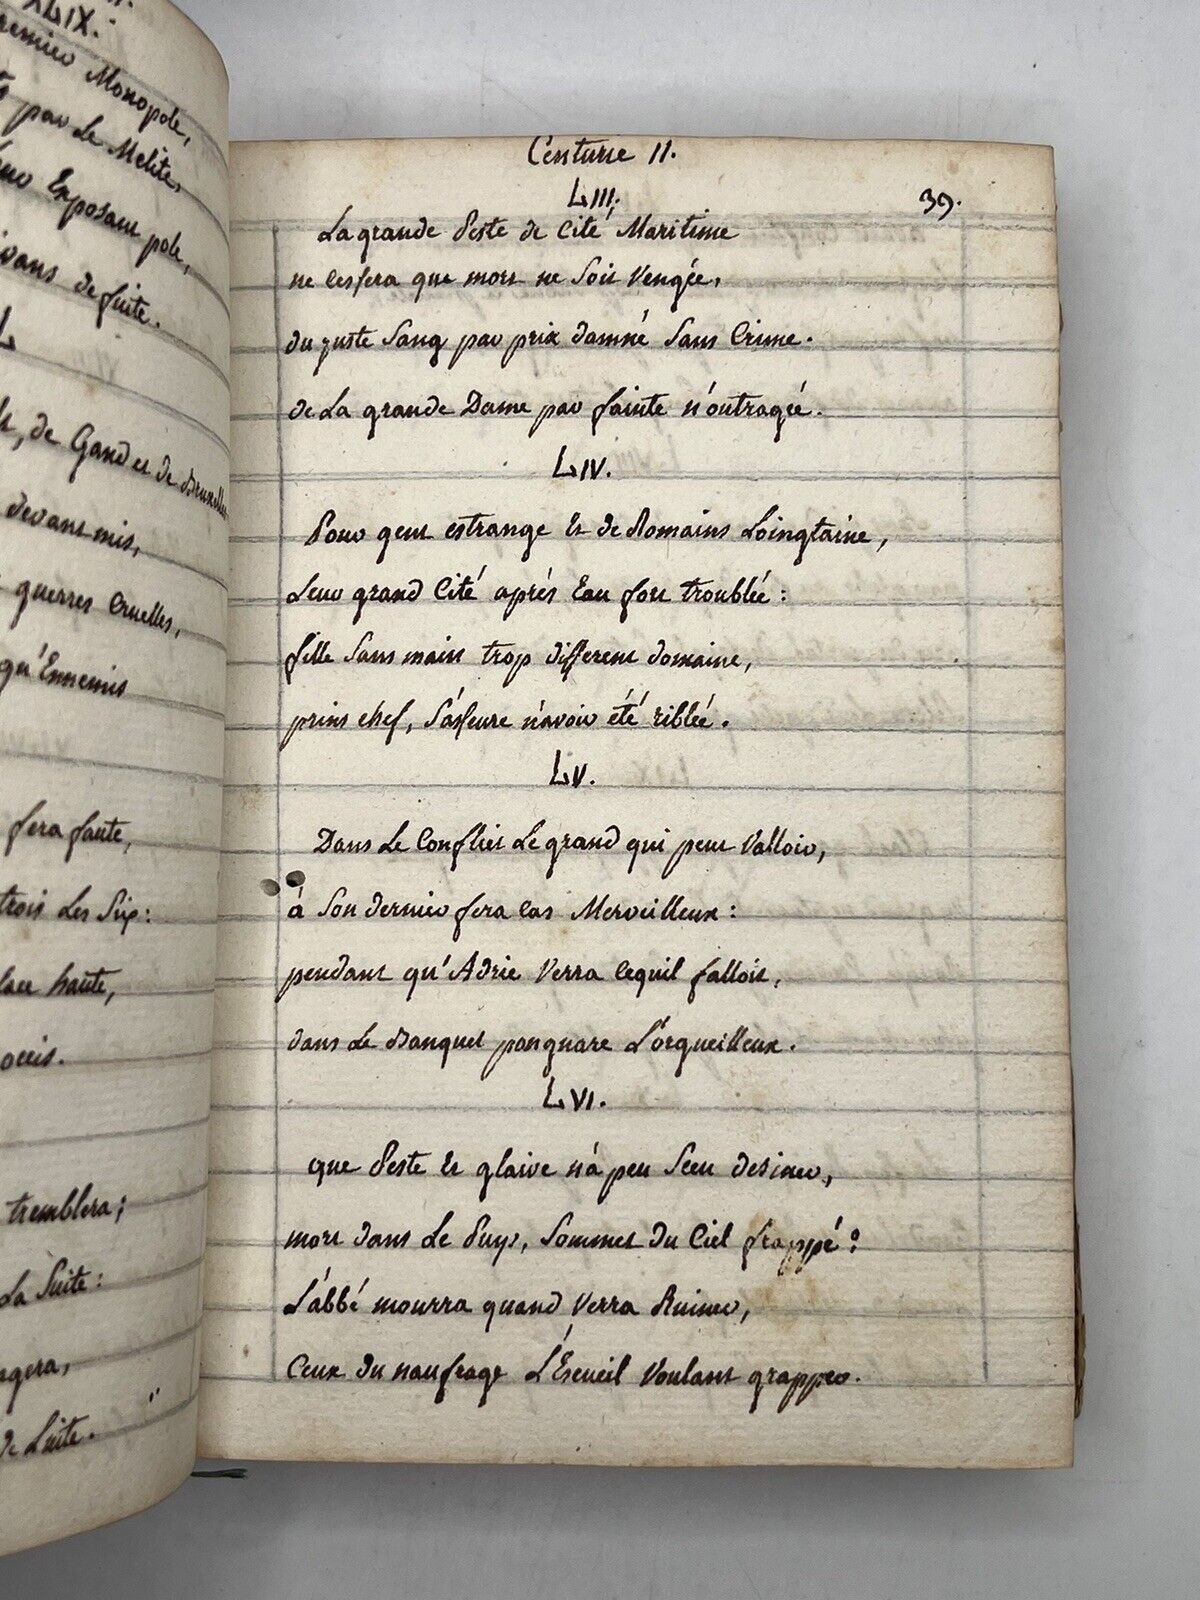 XLIX.
Monopole,
par Le Melite,
Exposant pole,
de fuite.
L
de Gand et de Bruxelles
devant mis,
guerres Cruelles,
qu'Ennemis
fera faute,
trois Les Six:
haute,
occis.
tremblera;
La Suite:
de Suite.
Centurie II.
39.
LIII.
La grande Peste de Cité Maritime
ne cessera que mort ne Soit Vengée,
du juste Sang par prix damné Sans Crime.
de La grande Dame par fainte n'outragée.
LIV.
Pour gent estrange Et de Romains Loingtaine,
Leur grand Cité aprés Eau fort troublée:
fille Sans main trop different domaine,
prins chef, S'asseure n'avoir été riblée.
LV.
Dans Le Conflict Le grand qui peut Valloir,
à Son dernier fera Cas Merveilleux:
pendant qu'Adrie Verra Cequil falloit,
dans Le Banquet pongnare L'orgueilleux.
LVI.
que Peste Et glaive n'a peu Seeu definer,
mort dans Le Puys, Sommet du Ciel frappé:
L'abbé mourra quand Verra Ruiner,
Ceux du naufrage L'Escueil Voulant grapper.